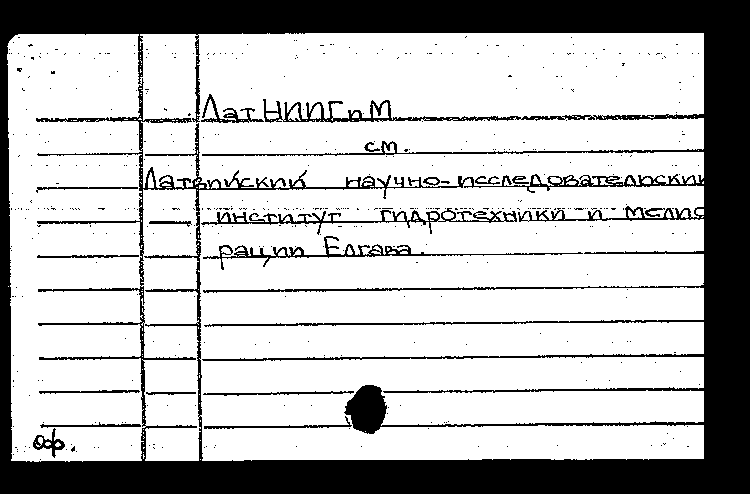 ЛатНИИГиМ
см.
Латвийский научно-исследовательский
институт гидротехники и мелио
рации Елгава.
Оф.